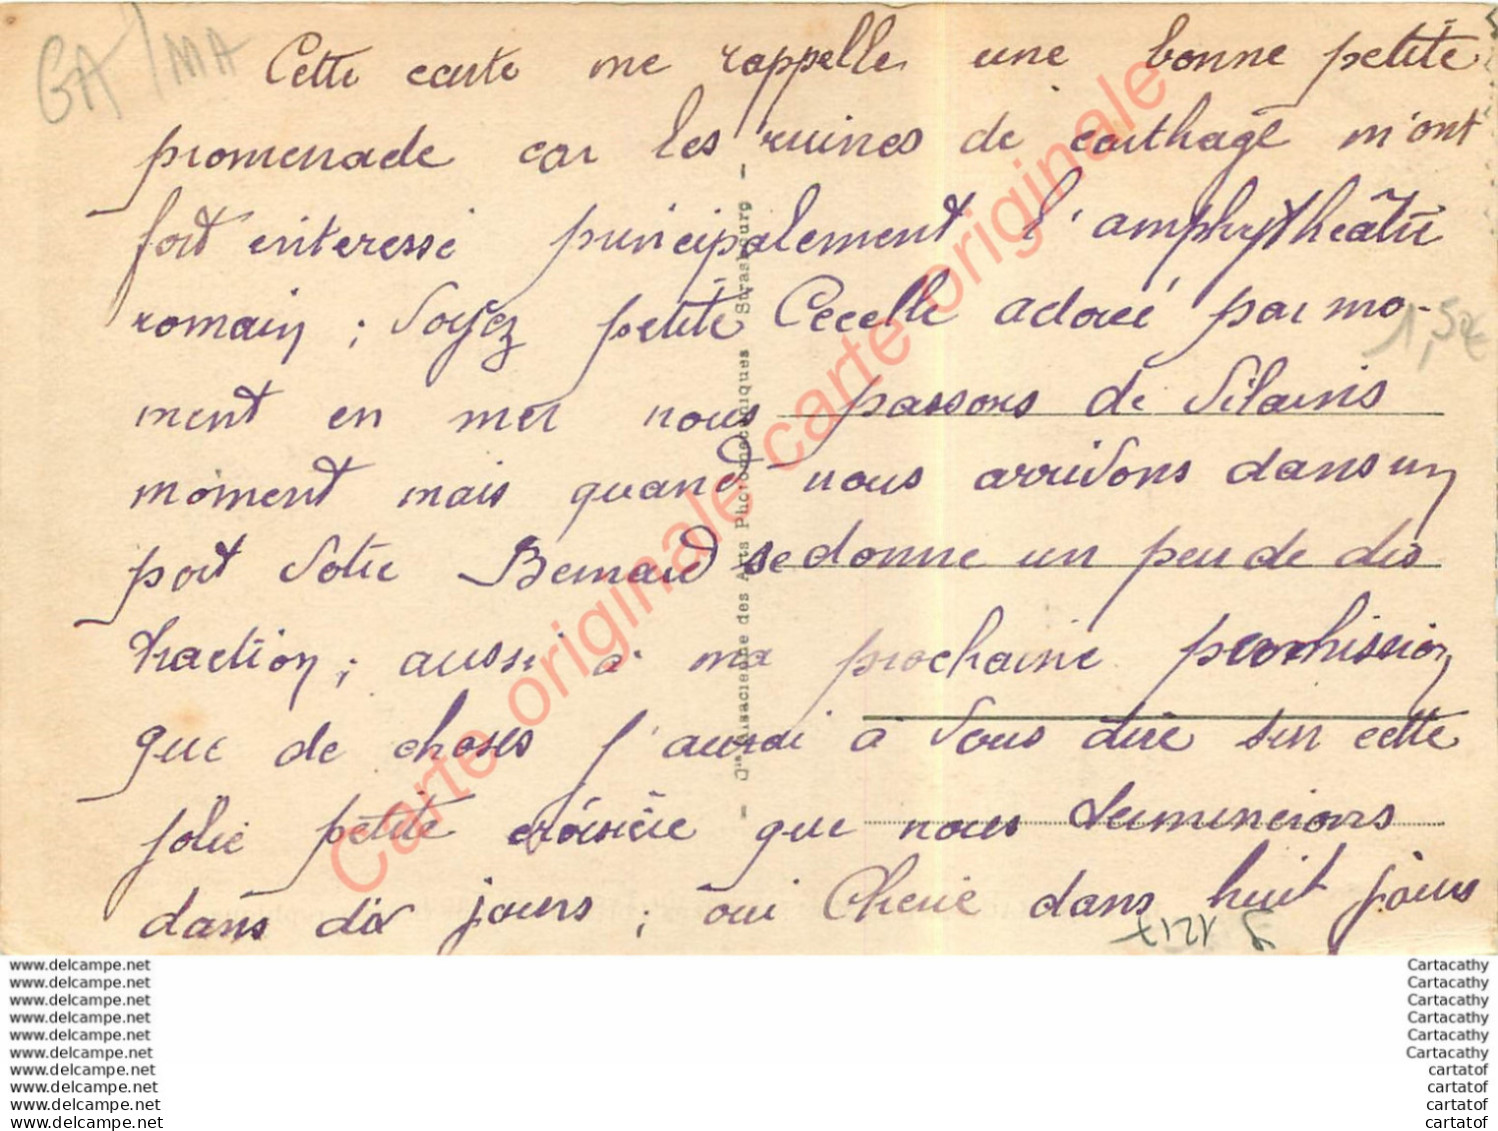 GA/MA
Cette carte me rappelle une bonne petite
promenade car les ruines de carthage m'ont
fort interessé principalement l'amphythéâtre
romain ; Voyez petite Cecelle adoreé par mo-
ment en mer nous passons de vilains
moment mais quand nous arrivons dans un
port votre Bernard se donne un peu de dis
traction ; aussi à ma prochaine
que de choses j'aurai à vous dire sur cette
jolie petite croisière que nous
dans dix jours ; oui Cherie dans huit jours
1,50€
Cie Alsacienne des Arts Photomécaniques Strasbourg
Carte originale carte originale
www.delcampe.net Cartacathy
www.delcampe.net Cartacathy
www.delcampe.net Cartacathy
www.delcampe.net Cartacathy
www.delcampe.net Cartacathy
www.delcampe.net Cartacathy
www.delcampe.net cartatof
www.delcampe.net cartatof
www.delcampe.net cartatof
www.delcampe.net cartatof